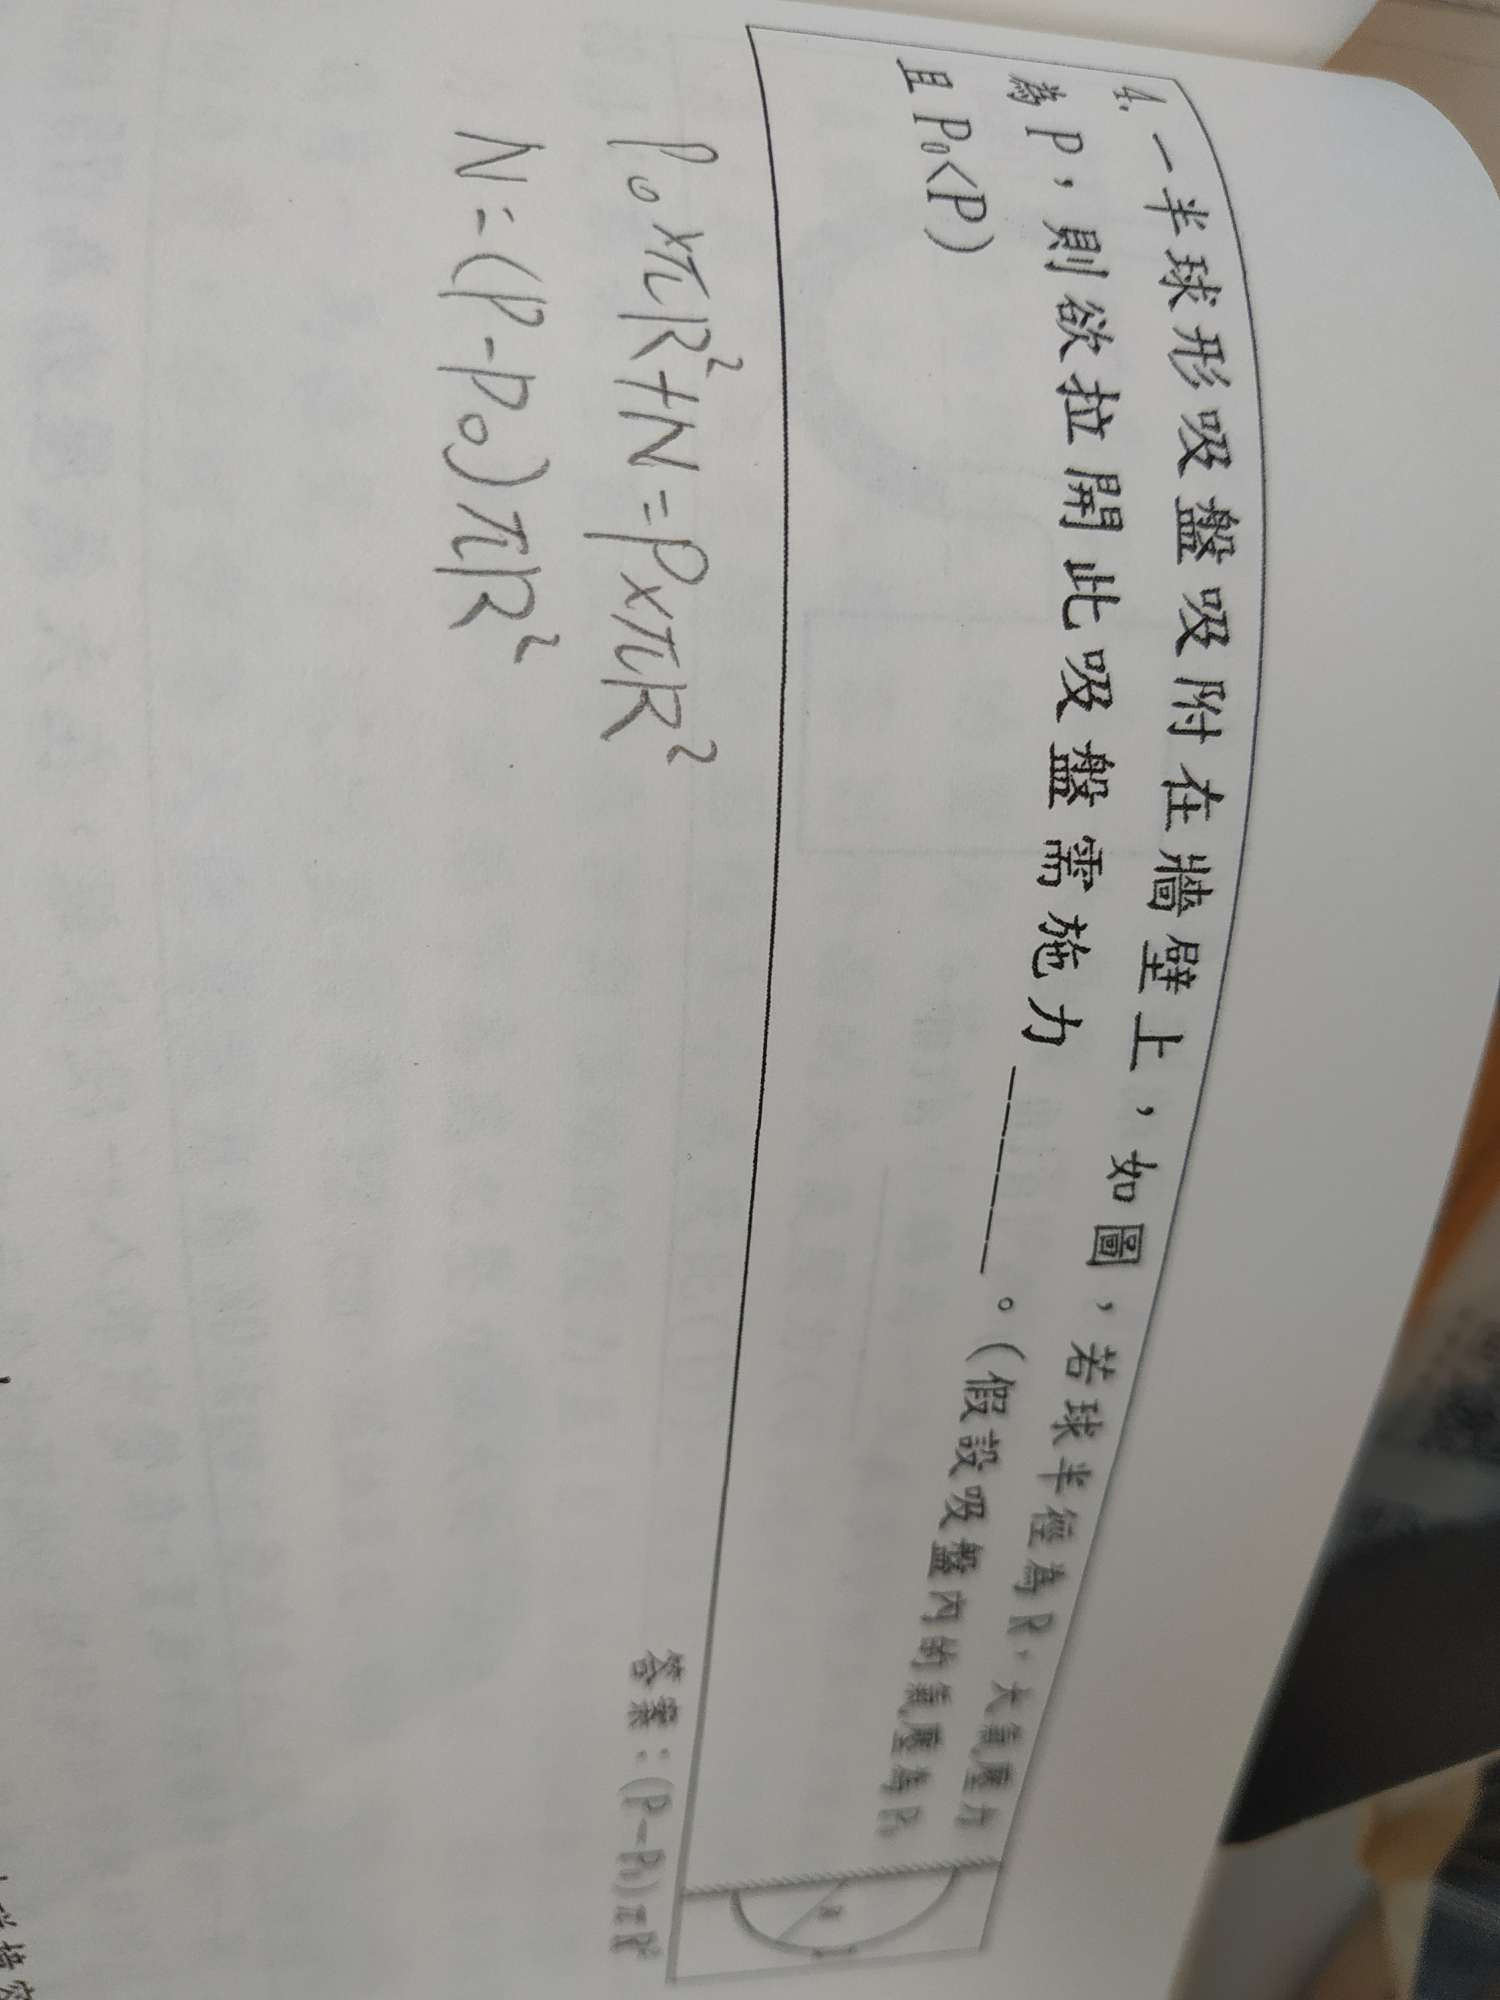 4. 一半球形吸盤吸附在牆壁上，如圖，若球半徑為R，大氣壓力
為P，則欲拉開此吸盤需施力＿＿＿＿。(假設吸盤內的氣壓為P₀
且P₀<P)
答案：(P－P₀)πR²
P₀×πR²+N=P×πR²
N=(P-P₀)πR²